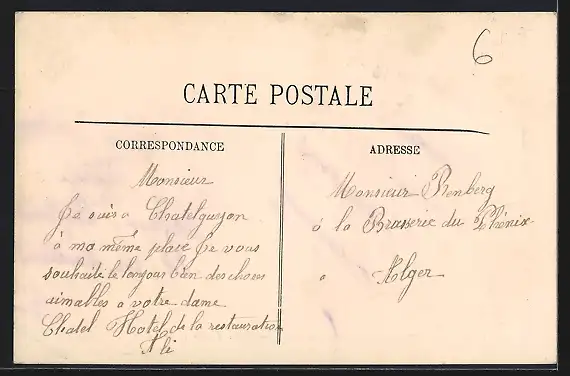 6
CARTE POSTALE
CORRESPONDANCE
Monsieur
Je suis a Chatelguyon
à ma même place Je vous
souhaite le bonjour bien des choses
aimables a votre dame
Chatel Hotel de la restauration
Ali
ADRESSE
Monsieur Renberg
á la Brasserie du Phénix
a Alger